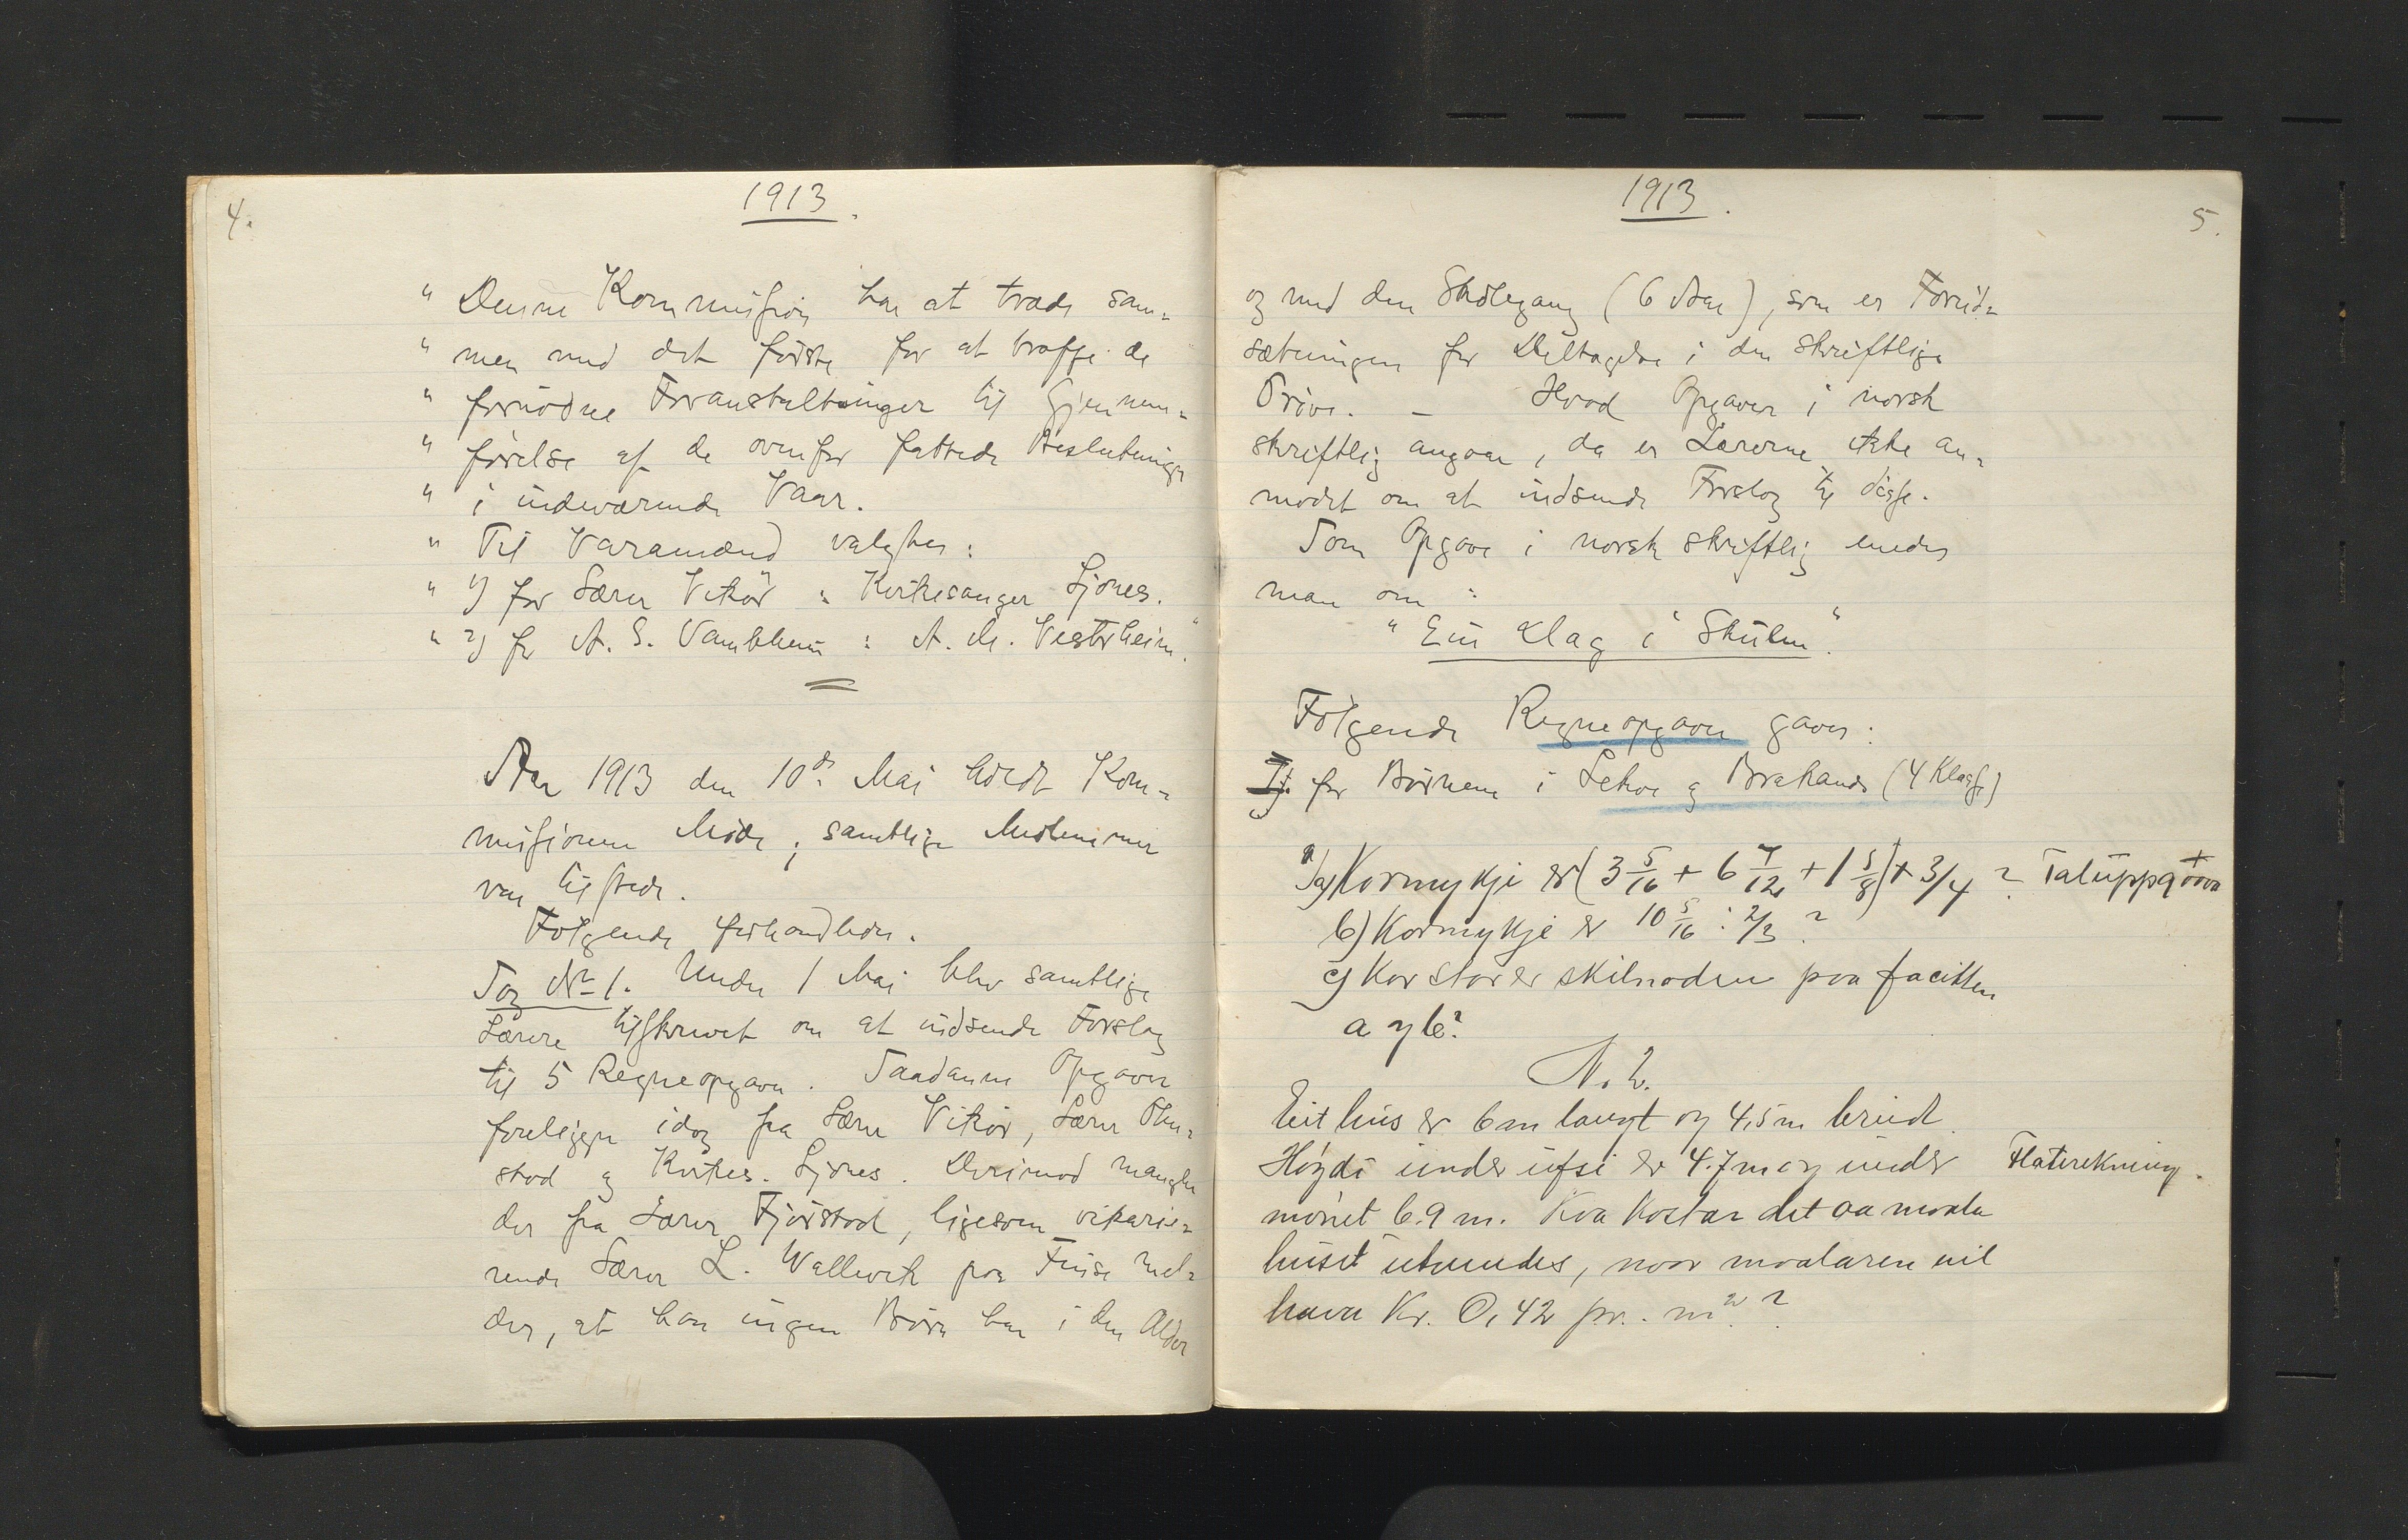 4.
1913.
" Denne Kommission har at træde sam-
" men med det første for at træffe de
" fornødne Foranstaltninger til Gjennem-
" førelse af de ovenfor fattede Beslutninger
" i indeværende Vaar.
" Til Varamænd valgtes:
" 1) for Lærer Vikør: Kirkesanger Ljones.
" 2) for A. S. Vambheim: A. M. Vestrheim."
Aar 1913 den 10de Mai holdt Kom-
missionen Møde; samtlige Medlemmer
var tilstede.
Følgende forhandledes.
Sag No 1. Under 1 Mai blev samtlige
Lærere tilskrevet om at indsende Forslag
til 5 Regneopgaver. Saadanne Opgaver
foreligger idag fra Lærer Vikør, Lærer
stad og Kirkes. Ljones. Derimod mangler
der fra Lærer Fjørstad, ligesom vikarie-
rende Lærer L. Wallevik paa Finse mel-
der, at han ingen Børn har i den Alder
1913.
5.
og med den Skolegang (6 Aar), som er Forud-
sætningen for Deltagelse i den skriftlige
Prøve. – Hvad Opgaver i norsk
skriftlig angaar, da er Lærerne ikke an-
modet om at indsende Forslag til disse.
Som Opgave i norsk skriftlig enedes
man om:
"Ein Dag i Skulen".
Følgende Regneopgaver gaves:
I). for Børnene i Lekve og Brakanes (4 Klasse)
1 a) Kormykje er (3 5/16 + 6 7/12 + 1 5/8) + 3/4? Taluppgaava
b) Kormykje er 10 5/16 : 2/3?
c) Kor stor er skilnaden paa faciten
a og b?
N. 2.
Eit hus er 6 m langt og 4,5 m breidt.
Høgdi under ufsi er 4.7 m og under Flaterekning.
mønet 6.9 m. Kva kostar det aa maala
huset utvendes, naar maalaren vil
hava Kr. 0,42 pr. m²?